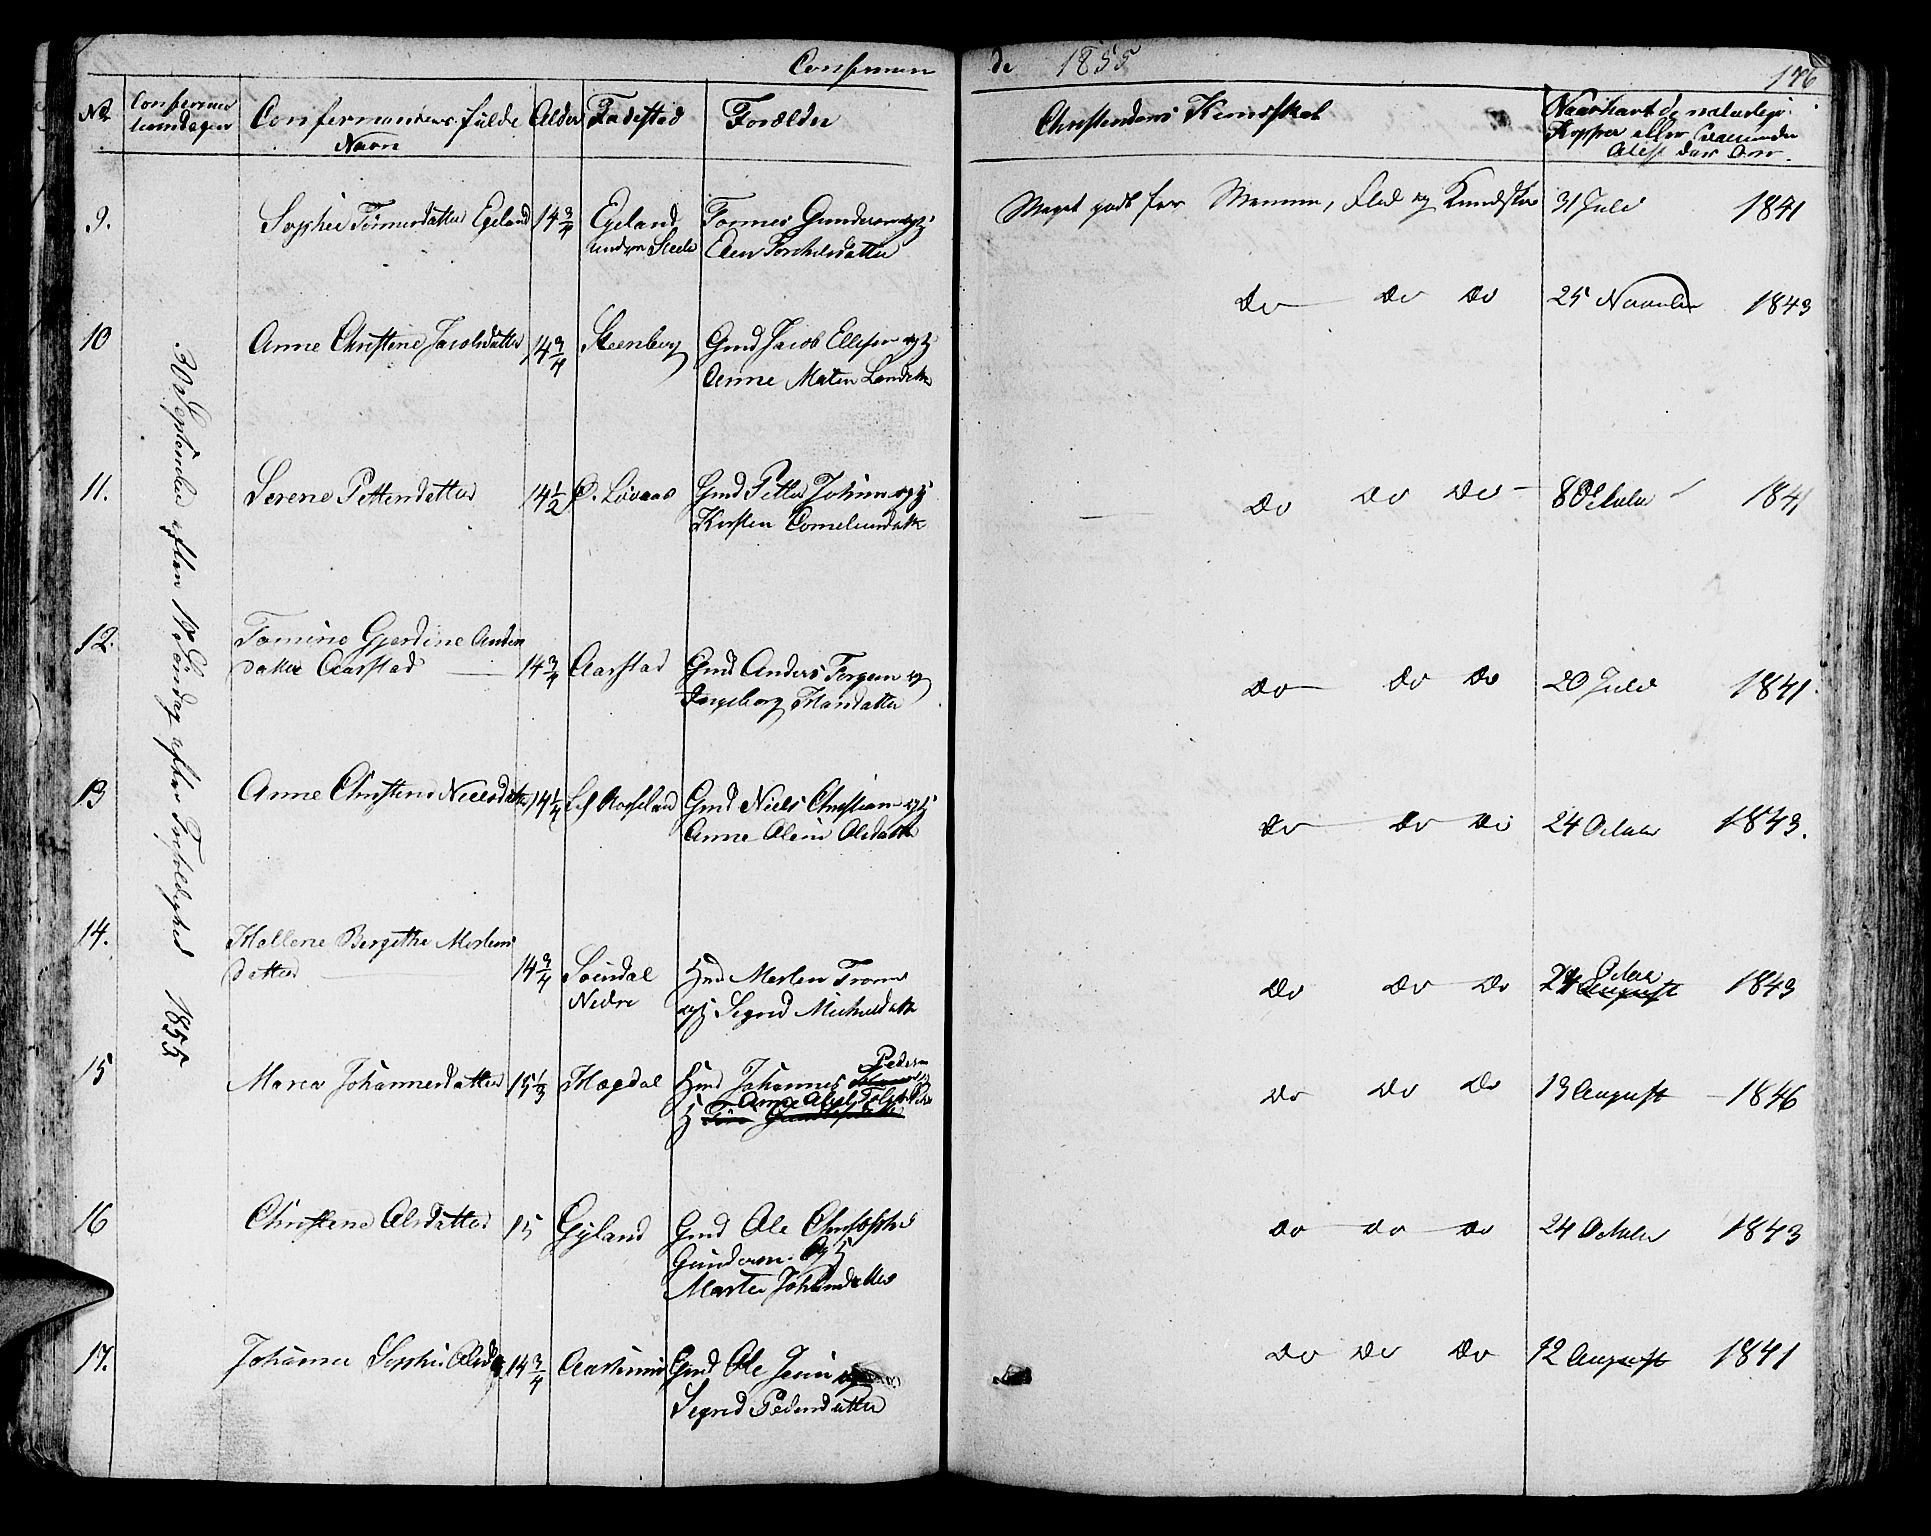 Confirmerede 1855
176
No
Confirma
tionsdagen
Confirmandens fulde
Navn
Alder
Fødested
Forældre
Christendoms Kundskab
Naar havt de naturlige
Kopper eller Vaccinerede
30 September eller 17de Søndag efter Trefoldighed 1855
9.
Sophie Tønnesdatter Egeland
14 3/4
Egeland
under
Tønnes Gundersen og H
Elen Torkelsdatter
Meget godt for Nemme, Flid og Kundskab
31 Juli 1841
10
Anne Christine Jacobsdatter
14 3/4
Steenberg
Gmd Jacob Ellefsen og H
Anne Malen
Do Do Do
25 November 1843
11.
Serene Pettersdatter
14 1/2
Ø. Løvaas
Gmd Petter Johnsen og H
Kirsten Corneliusdatter
Do Do Do
8 October 1841
12.
Tomine Gjerdine Anders
datter Aarstad
14 3/4
Aarstad
Gmd Anders Torgersen og
Ingeborg Hansdatter
Do Do Do
20 Juli 1841.
13
Anne Christine Nielsdatter
14 1/4
Gmd Niels Christiansen og H
Anne Olene Olsdatter
Do Do Do
24 October 1843.
14.
Hellene Bergithe Mortens
datter
14 3/4
Soındal
Nedre
Hmd Morten
og H Sigrid Michelsdatter
Do Do Do
24 October August 1843
15
Maren Johannesdatter
15 1/3
Hægdal
Hmd Johannes Pedersen
H Anne
Do Do Do
13 August 1846
16
Christine Olsdatter
15
Gyland
Gmd Ole Christopher
Gundersen og H
Marthe Johnsdatter
Do Do Do
24 October 1843
17.
Johanne Sophie Olsdtr
14 3/4
Gmd Ole Jensen og
Sigrid Pedersdatter
Do Do Do
12 August 1841